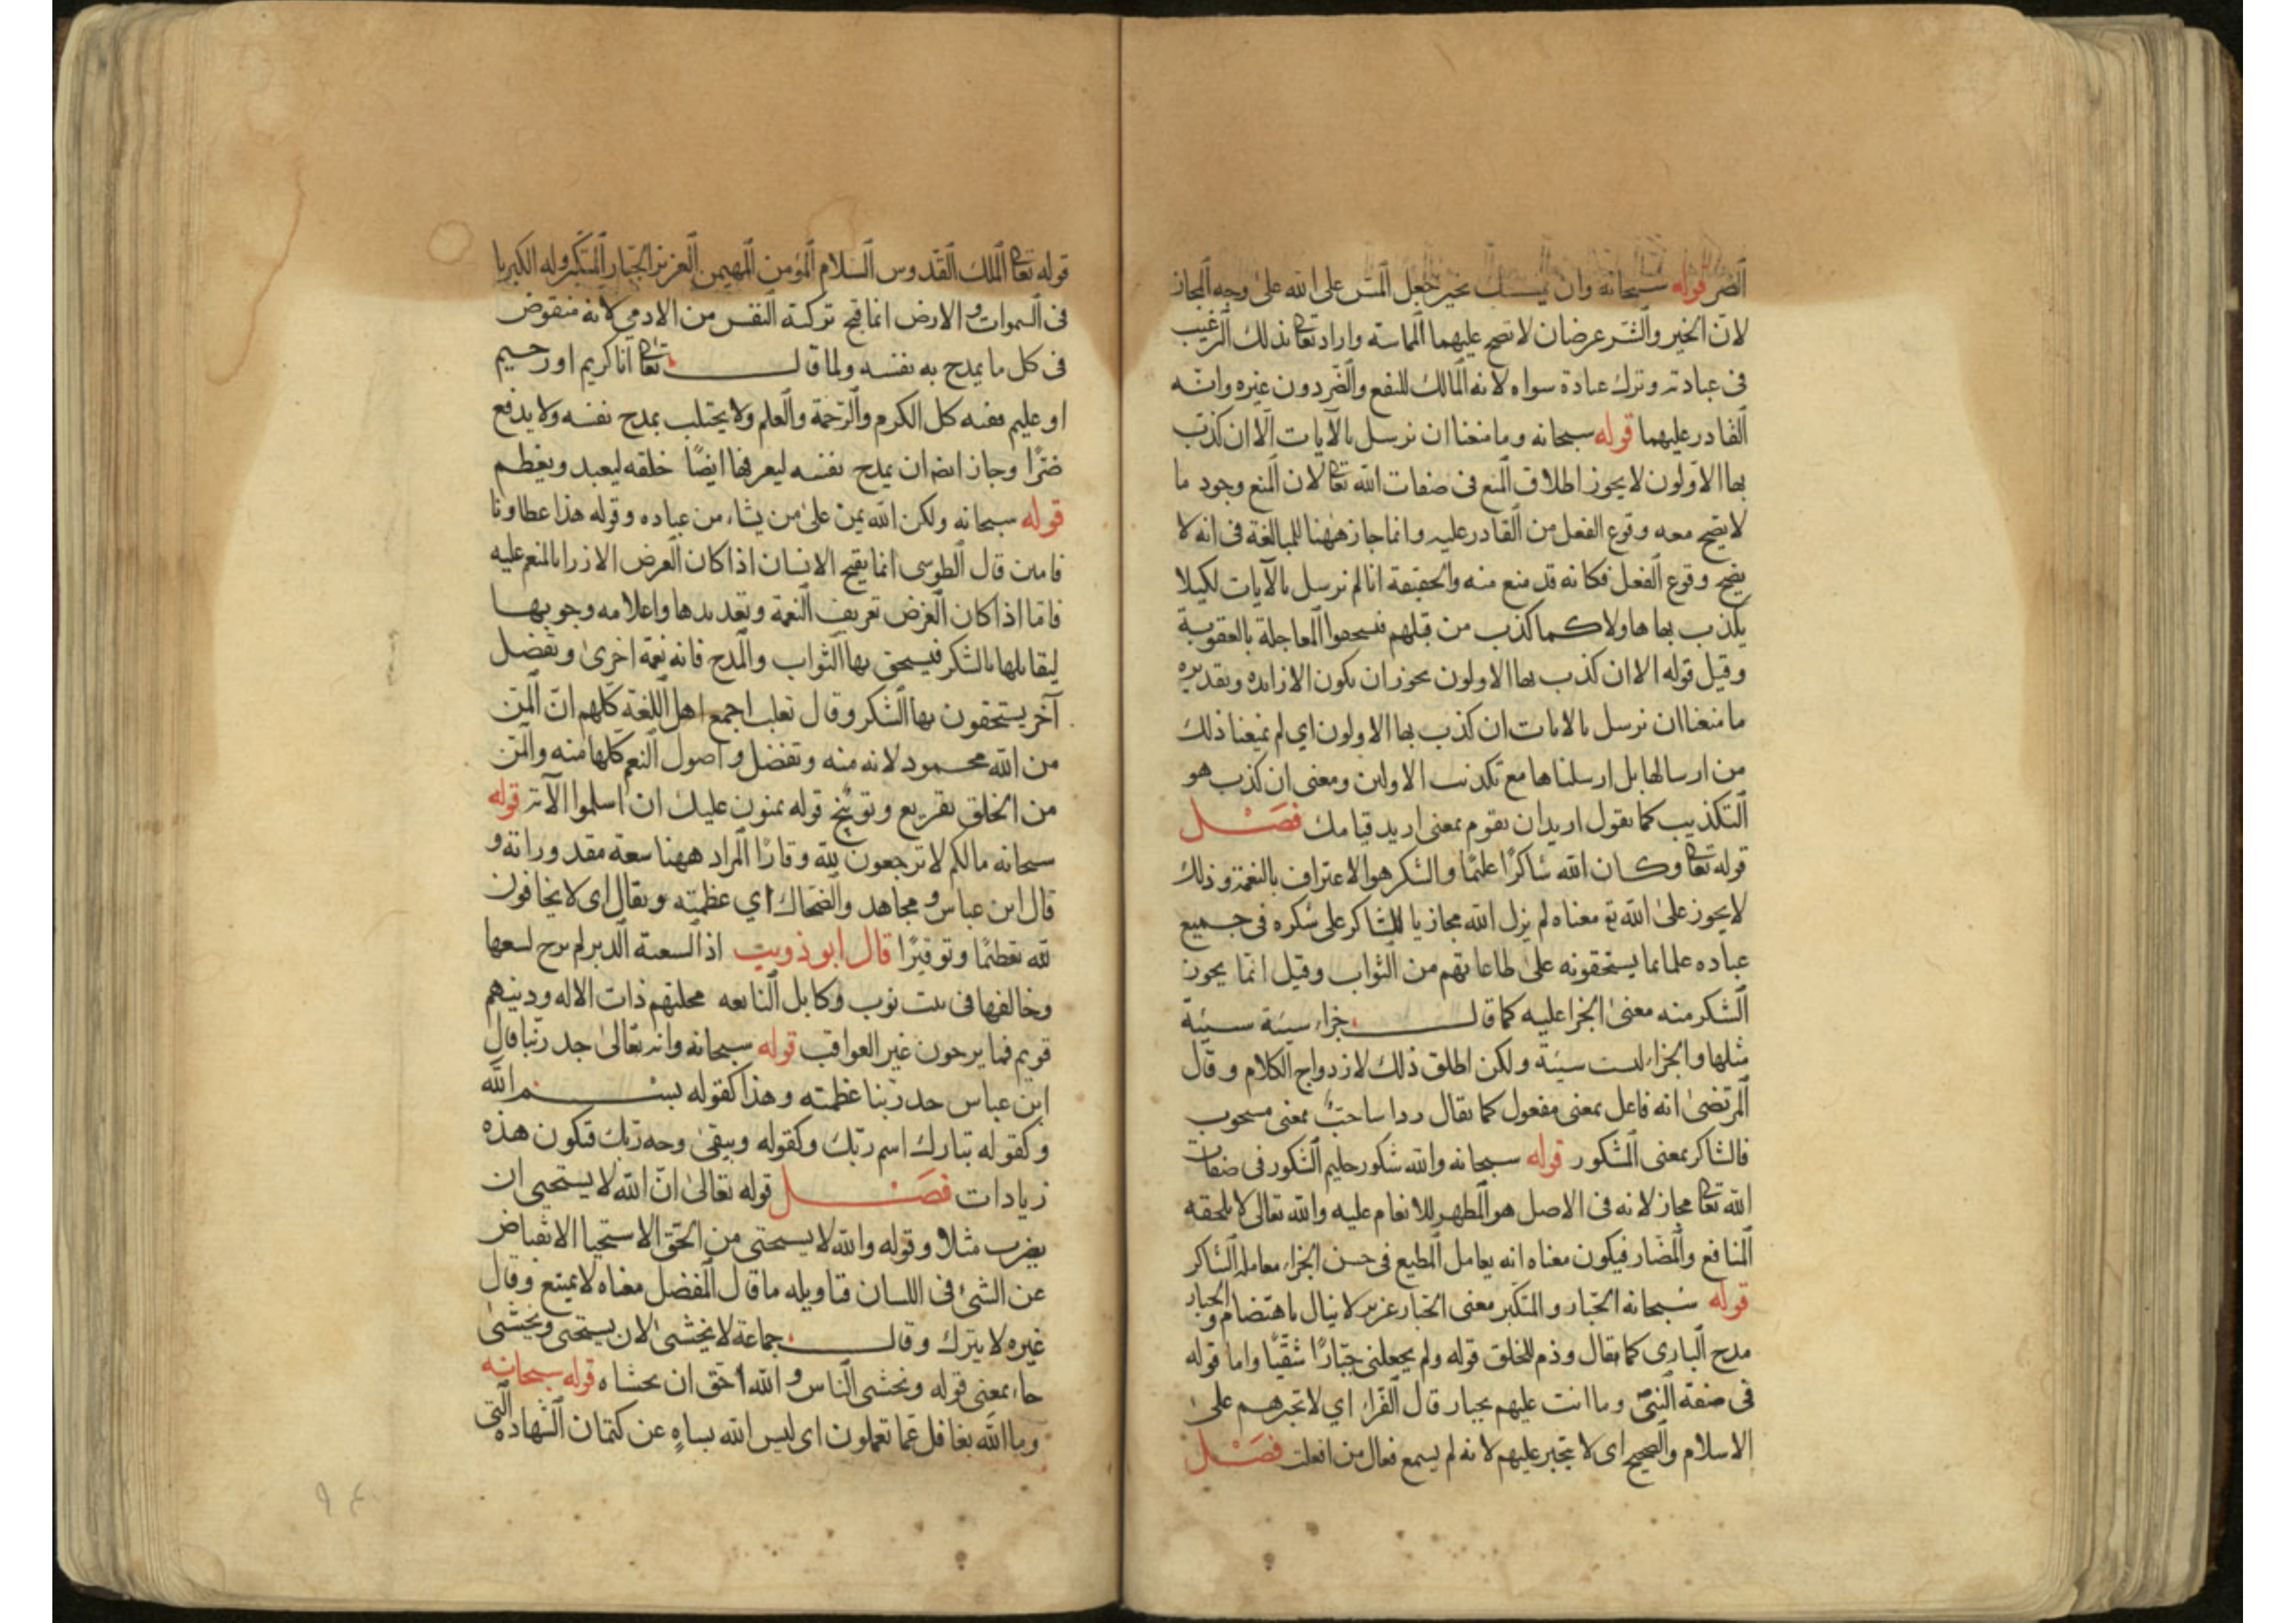 الضر قوله سبحانه وان يمسسك بخير جعل المس على الله على وجه المجاز
لان الخير والشر عرضان لا تصح عليهما المماسة واراد تعا بذلك الرغيب
فى عبادته وترك عبادة سواه لانه المالك للنفع والضر دون غيره وانه
القادر عليهما قوله سبحانه وما منعنا ان نرسل بالآيات الا ان كذب
بها الاولون لا يجوز اطلاق المنع فى صفات الله تعا لان المنع وجود ما
لا يصح معه وقوع الفعل من القادر عليه وانما جاز ههنا للمبالغة فى انه لا
يصح وقوع الفعل فكانه قد منع منه والحقيقة انا لم نرسل بالآيات لكيلا
يكذب بها هاولا كما كذب من قبلهم فيستحقوا المعاجلة بالعقوبة
وقيل قوله الا ان كذب بها الاولون يجوز ان يكون الا زايده وتقديره
ما منعنا ان نرسل بالايات ان كذب بها الاولون اي لم يمنعنا ذلك
من ارسالها بل ارسلناها مع تكذيب الاولين ومعنى ان كذب هو
التكذيب كما يقول اريد ان تقوم بمعنى اريد قيامك فصل
قوله تعا وكان الله شاكرًا عليمًا والشكر هو الاعتراف بالنعمة وذلك
لا يجوز على الله تع معناه لم يزل الله مجازيا للشاكر على شكره فى جميع
عباده علما بما يستحقونه على طاعاتهم من الثواب وقيل انما يجوز
الشكر منه معنى الجزا عليه كما قال جزاء سيئة سيئة
مثلها والجزاء ليست سيئة ولكن اطلق ذلك لازدواج الكلام وقال
المرتضى انه فاعل بمعنى مفعول كما يقال ردا ساحب بمعنى مسحوب
فالشاكر بمعنى المشكور قوله سبحانه والله شكور حليم الشكور فى صفات
الله تعا مجاز لانه فى الاصل هو المظهر للانعام عليه والله تعالى لا يلحقه
المنافع والمضار فيكون معناه انه يعامل المطيع فى حسن الجزاء معاملة الشاكر
قوله سبحانه الجبار والمتكبر معنى الجبار عزيز لا ينال باهتضام والجبار
مدح البارى كما يقال وذم للخلق قوله ولم يجعلنى جبارًا شقيًا واما قوله
فى صفة النبىّ وما انت عليهم بجبار قال الفراء اي لا تجبرهم على
الاسلام والصحيح اى لا يتجبر عليهم لانه لم يسمع فعال من افعلت فصل
قوله تعا الملك القدوس السلام المؤمن المهيمن العزيز الجبار المتكبر وله الكبريا
فى السموات والارض انما قبح تزكية النفس من الادمي لانه منقوض
فى كل ما يمدح به نفسه ولما قال تعا انا كريم او رحيم
او عليم ففيه كل الكرم والرحمة والعلم ولا يجتلب بمدح نفسه ولا يدفع
ضرًا وجاز ايضا ان يمدح نفسه ليعرفها ايضًا خلقه ليعبد ويعظم
قوله سبحانه ولكن الله يمن على من يشاء من عباده وقوله هذا عطاونا
فامنن قال الطوسى انما يقبح الانسان اذا كان الغرض الازرا بالمنعم عليه
فاما اذا كان الغرض تعريف النعمة وتعديدها واعلامه وجوبها
ليقابلها بالشكر فيستحق بها الثواب والمدح فانه نعمة اخرى وتفضل
آخر يستحقون بها الشكر وقال ثعلب اجمع اهل اللغة كلهم ان المن
من الله محمود لانه منه وتفضل واصول النعم كلها منه والمن
من الخلق تقريع وتوبيخ قوله يمنون عليك ان اسلموا الآية قوله
سبحانه مالكم لا ترجعون لله وقارًا المراد ههنا سعة مقدوراته و
قال ابن عباس و مجاهد والضحاك اي عظمته ويقال اى لا يخافون
لله تعظيمًا وتوقيرًا قال ابو ذويب اذا لسعته الدبر لم يرج لسعها
وخالفها فى بيت نوب وكابل النابغه محلتهم ذات الاله ودينهم
قويم فما يرجون غير العواقب قوله سبحانه وانه تعالى جد ربنا قال
ابن عباس جد ربنا عظمته وهذا كقوله بسم الله
وكقوله تبارك اسم ربك وكقوله ويبقى وجه ربك فتكون هذه
زيادات فصل قوله تعالى ان الله لا يستحيى ان
يضرب مثلا وقوله والله لا يستحيى من الحق الاستحيا الانقباض
عن الشئ فى اللسان فتاويله ما قال المفضل معناه لا يمتنع وقال
غيره لا يترك وقال جماعة لا يخشى لان يستحى ويخشى
جاء بمعنى قوله وتخشى الناس والله احق ان تخشاه قوله سبحانه
وما الله بغافل عما تعملون اى ليس الله بساهٍ عن كتمان الشهادة التى